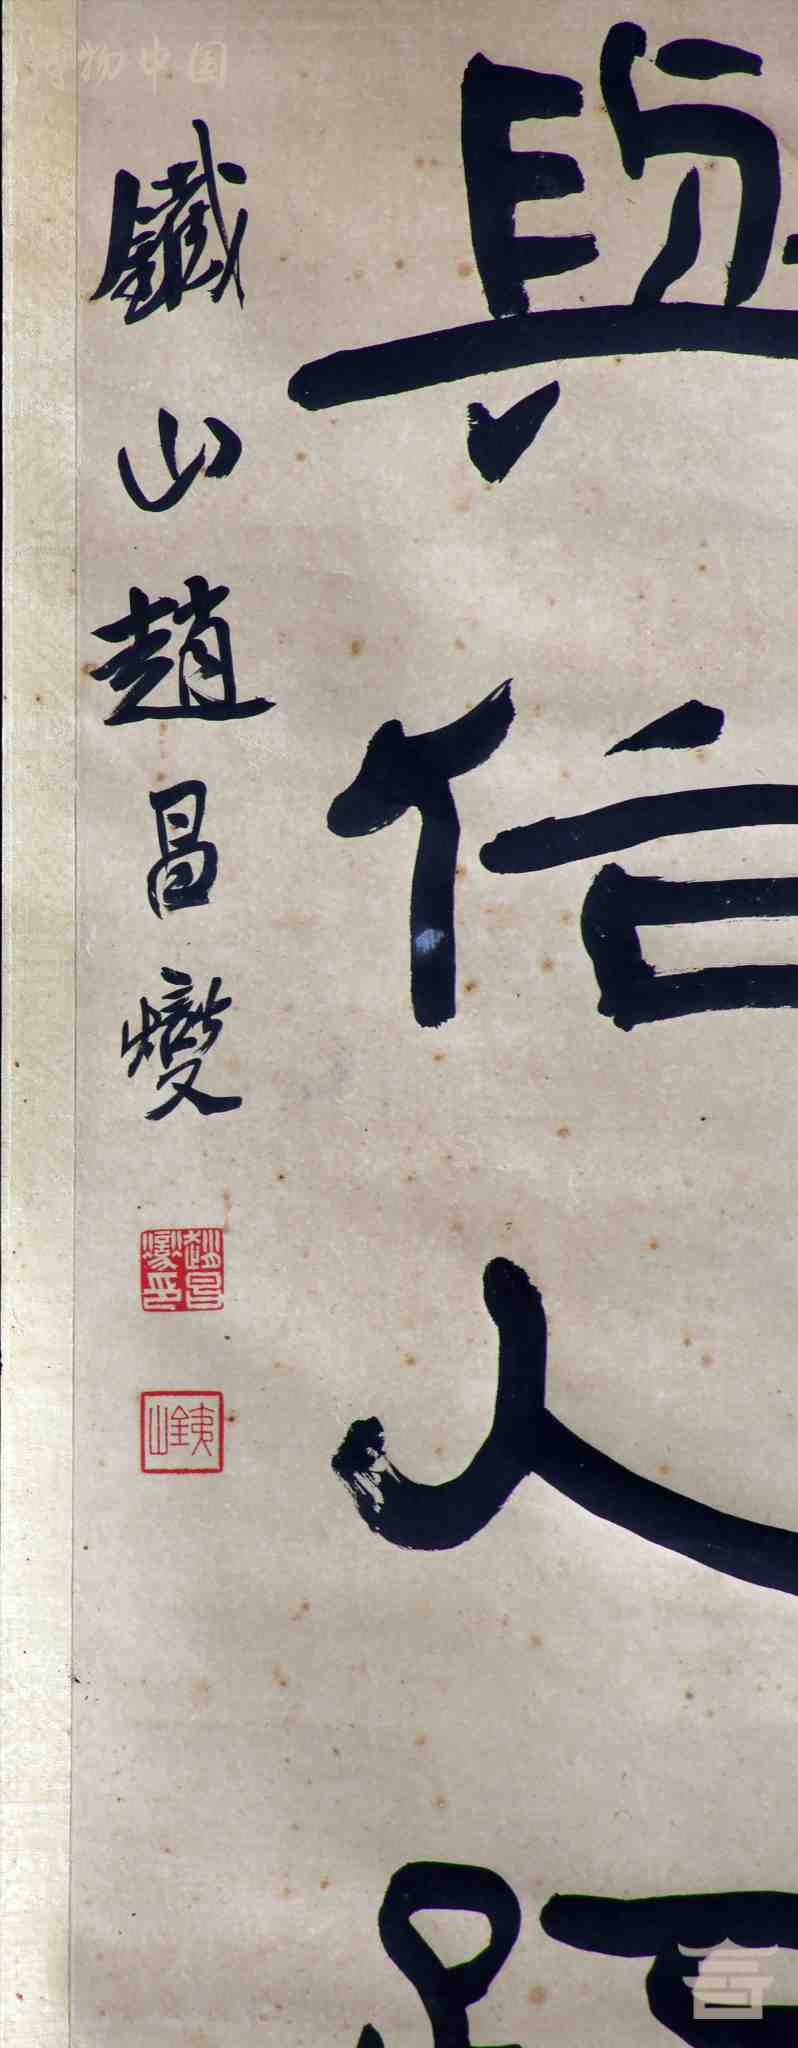 博物中国
與
信
人
鐵山趙昌燮
趙昌燮印
銕山